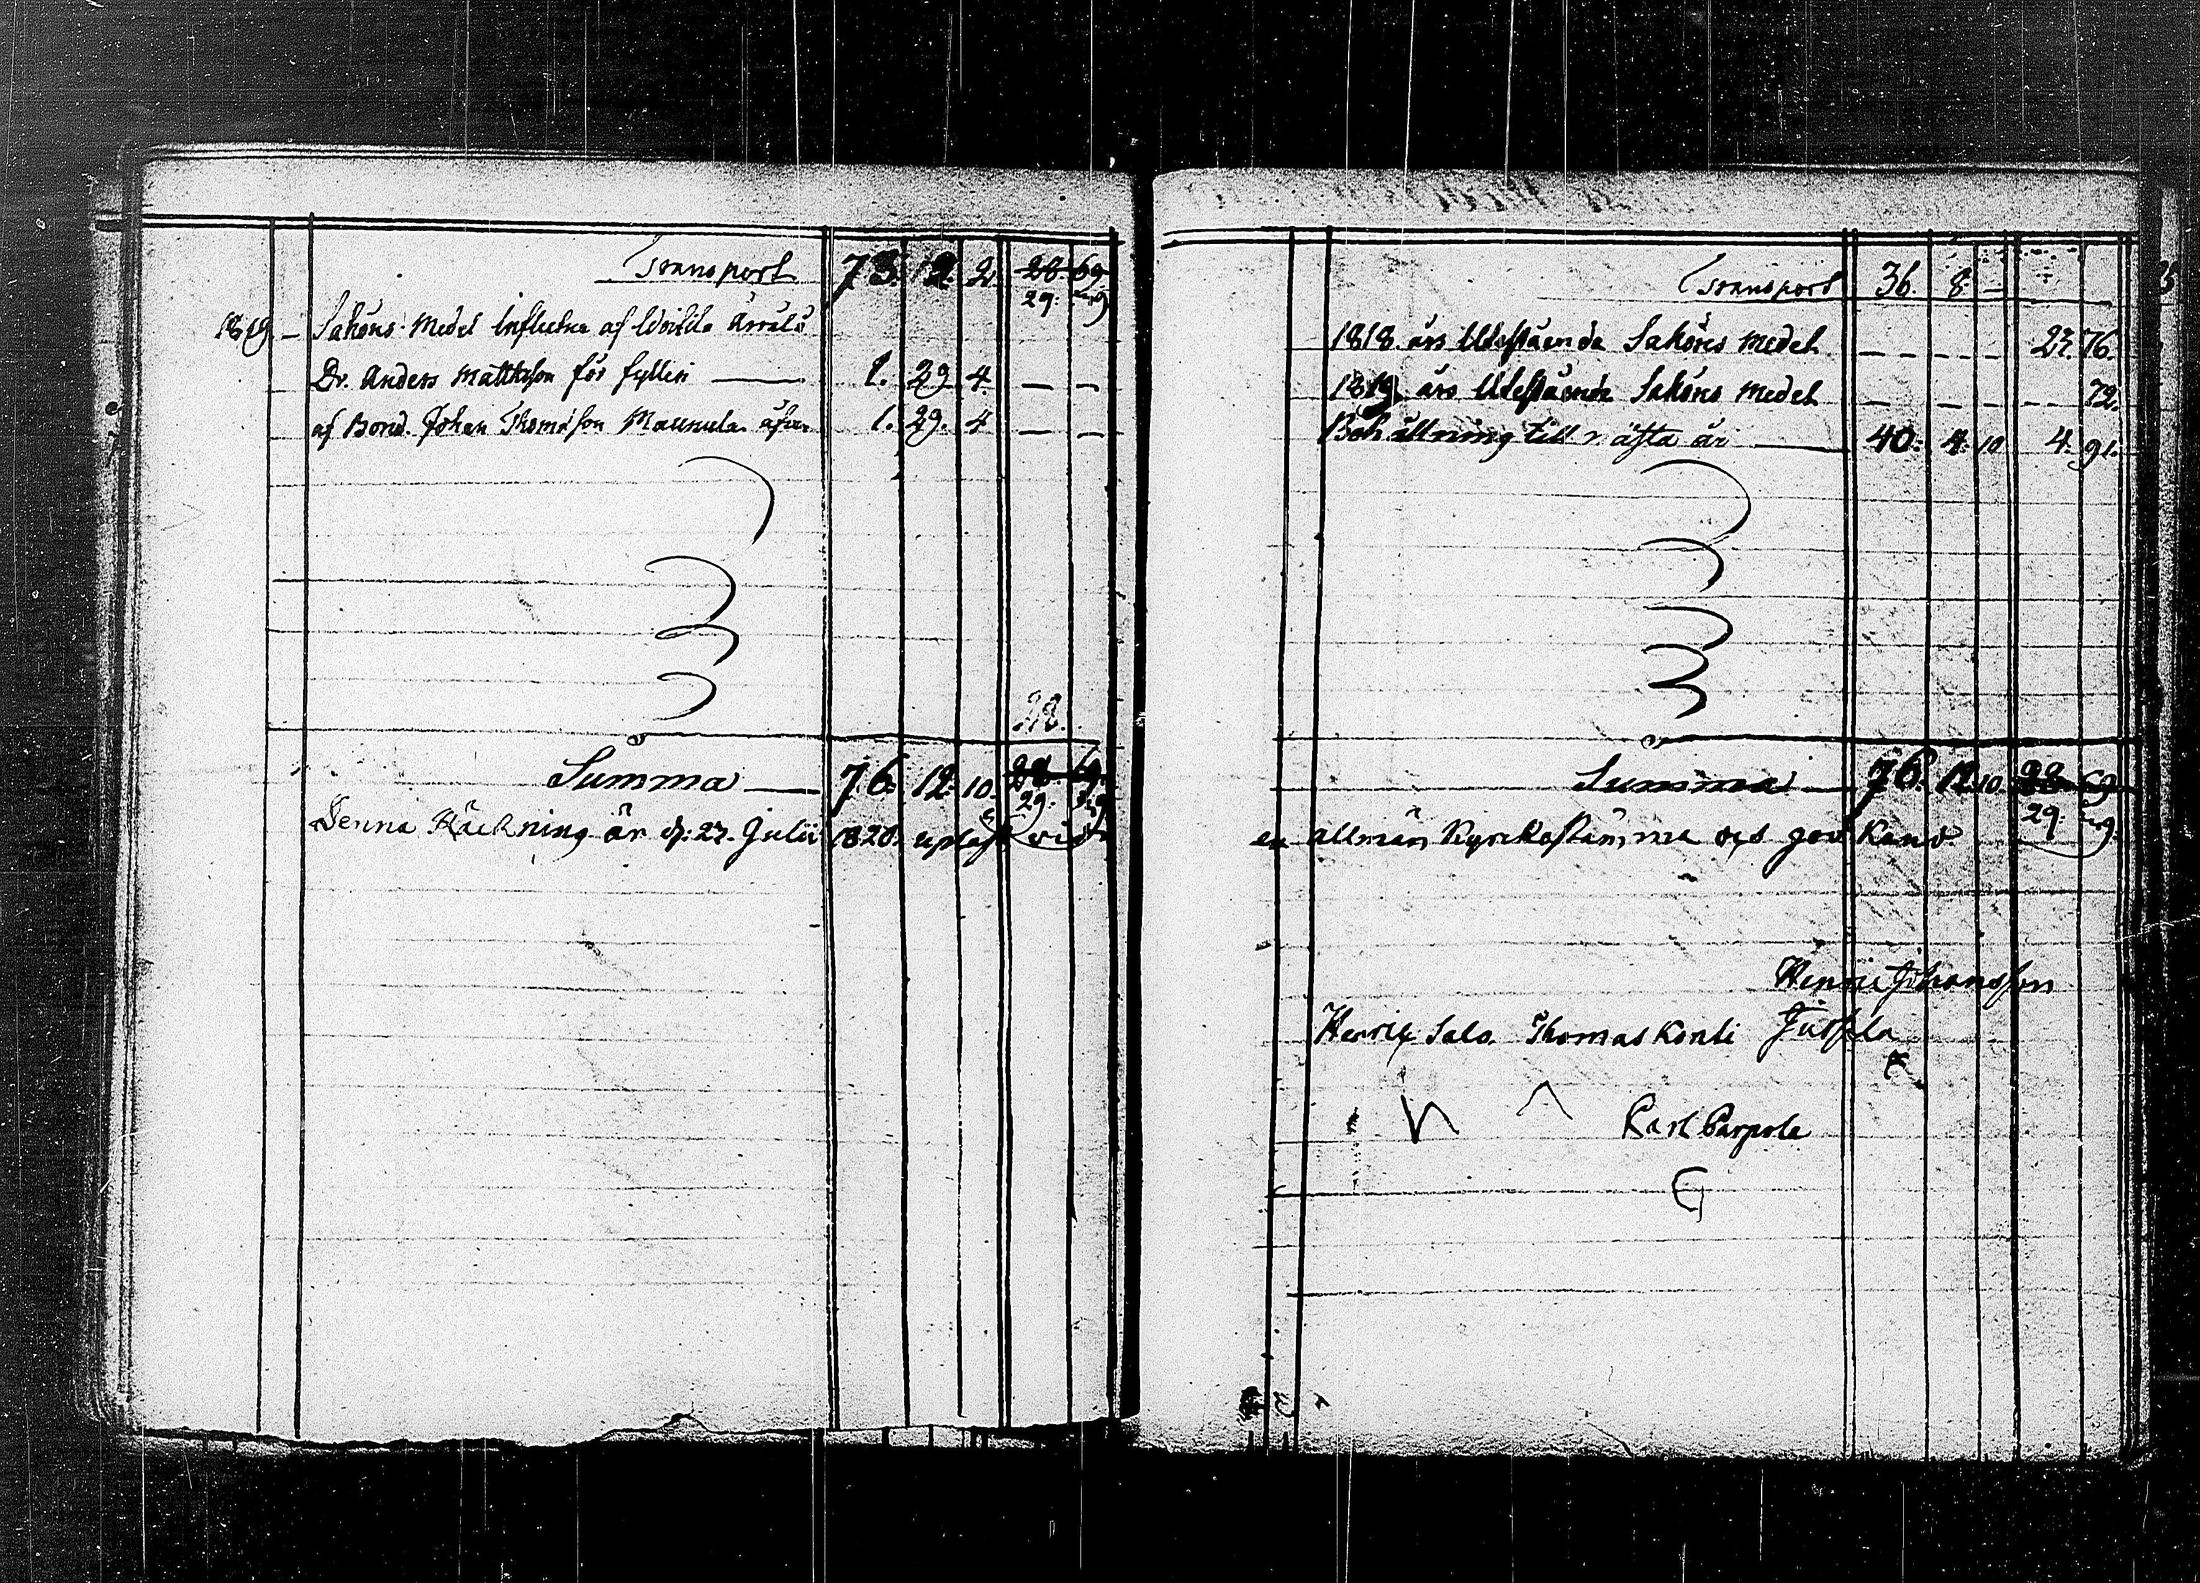 Transport 73. 12. 2. 28 69
29. 49
1819. – Saköns Medel influtne af Woitila
Dr. Anders Mattsson för fylleri — 1. 29. 4. – –
af Bond. Johan Thomasson Maunula 1. 29. 4 – –
28.
Summa — 76. 12. 10. 28. 69.
29. 49
Denna Räckning är d: 27. Julii 1820. upläst vid
Transport 36. 8. –
1818 års Utestående Saköres Medel – – – – 23. 76.
1819 års Utestående Saköres Medel – – – – 72.
Behållning till nästa år — 40. 4. 10 4. 91.
Summa — 76. 12. 10. 28 69
29. 49.
en allmän Kyrkostämma och god Känd.
Henric Johansson
Henric Salo Thomas Konti Jussila
Karl Parpola